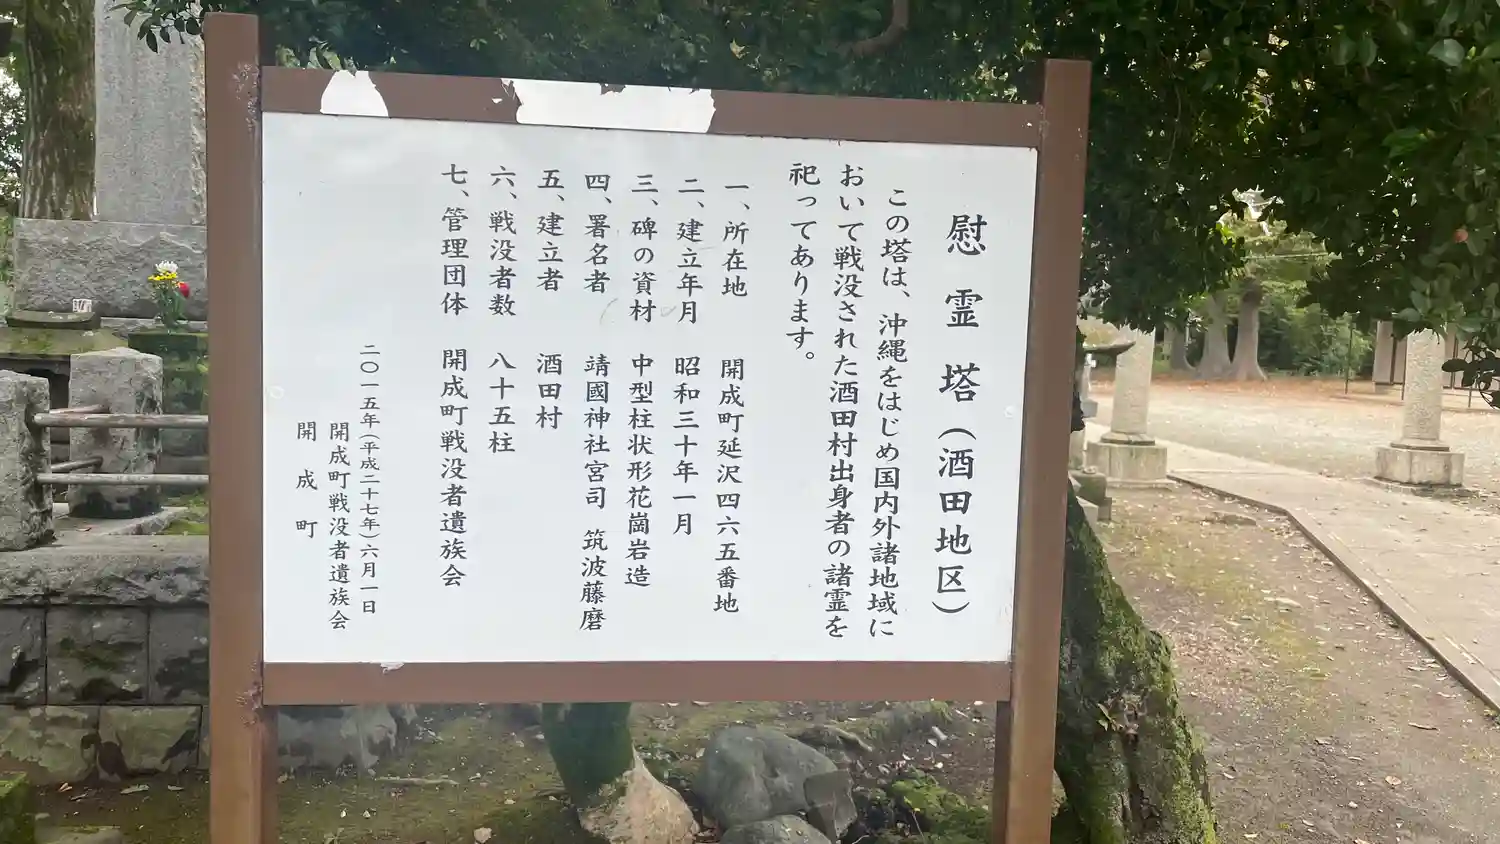 慰霊塔（酒田地区）
この塔は、沖縄をはじめ国内外諸地域に
おいて戦没された酒田村出身者の諸霊を
祀ってあります。
一、所在地　開成町延沢四六五番地
二、建立年月　昭和三十年一月
三、碑の資材　中型柱状形花崗岩造
四、署名者　靖國神社宮司　筑波藤磨
五、建立者　酒田村
六、戦没者数　八十五柱
七、管理団体　開成町戦没者遺族会
二〇一五年（平成二十七年）六月一日
開成町戦没者遺族会
開成町